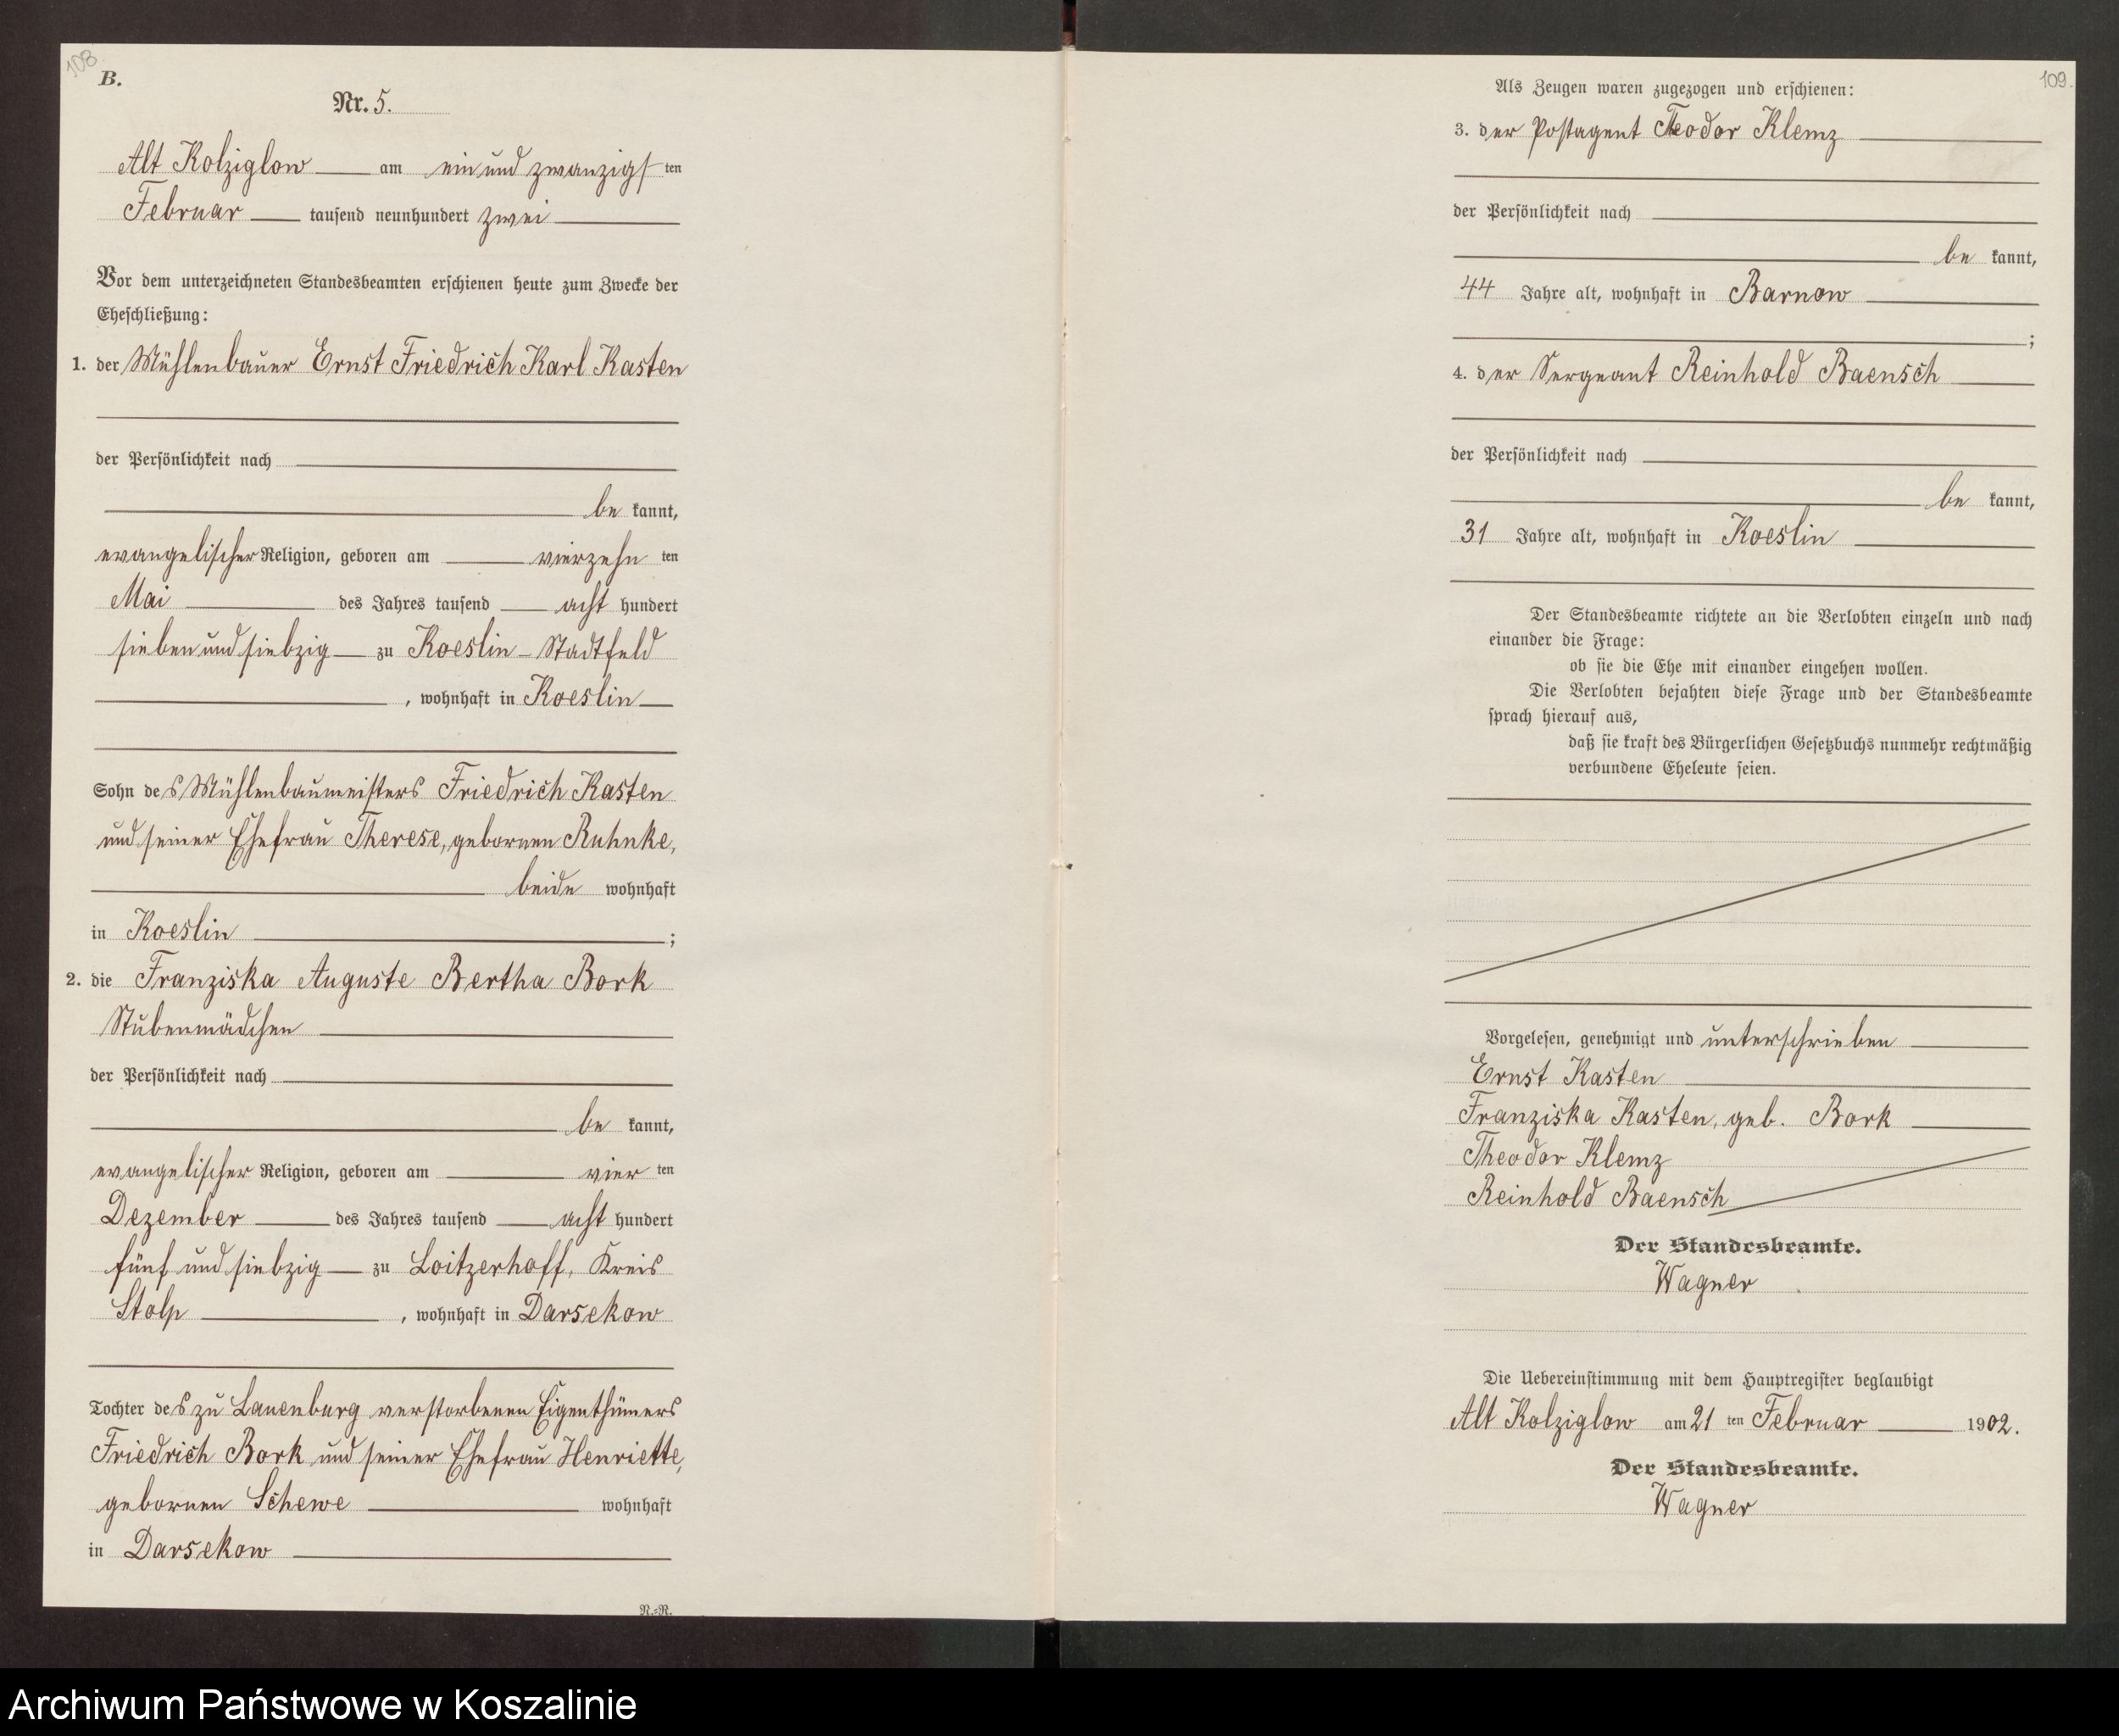 108.
B.
Nr. 5.
Alt Kolziglow am ein und zwanzigsten
Februar tausend neunhundert zwei
Vor dem unterzeichneten Standesbeamten erschienen heute zum Zwecke der
Eheschließung:
1. der Mühlenbauer Ernst Friedrich Karl Kasten
der Persönlichkeit nach
be kannt,
evangelischer Religion, geboren am vierzehn ten
Mai des Jahres tausend acht hundert
sieben und siebzig zu Koeslin - Stadtfeld
, wohnhaft in Koeslin
Sohn des Mühlenbaumeisters Friedrich Kasten
und seiner Ehefrau Therese, gebornen Ruhnke,
beide wohnhaft
in Koeslin ;
2. die Franziska Auguste Bertha Bork
Stubenmädchen
der Persönlichkeit nach
be kannt,
evangelischer Religion, geboren am vier ten
Dezember des Jahres tausend acht hundert
fünf und siebzig zu Loitzerhoff, Kreis
Stolp , wohnhaft in Darsekow
Tochter des zu Lauenburg verstorbenen Eigenthümers
Friedrich Bork und seiner Ehefrau Henriette,
gebornen Schewe wohnhaft
in Darsekow
N.-R.
109.
Als Zeugen waren zugezogen und erschienen:
3. der Postagent Theodor Klemz
der Persönlichkeit nach
be kannt,
44 Jahre alt, wohnhaft in Barnow
;
4. der Sergeant Reinhold Baensch
der Persönlichkeit nach
be kannt,
31 Jahre alt, wohnhaft in Koeslin
Der Standesbeamte richtete an die Verlobten einzeln und nach
einander die Frage:
ob sie die Ehe mit einander eingehen wollen.
Die Verlobten bejahten diese Frage und der Standesbeamte
sprach hierauf aus,
daß sie kraft des Bürgerlichen Gesetzbuchs nunmehr rechtmäßig
verbundene Eheleute seien.
Vorgelesen, genehmigt und unterschrieben
Ernst Kasten
Franziska Kasten, geb. Bork
Theodor Klemz
Reinhold Baensch
Der Standesbeamte.
Wagner
Die Uebereinstimmung mit dem Hauptregister beglaubigt
Alt Kolziglow am 21 ten Februar 1902.
Der Standesbeamte.
Wagner
Archiwum Państwowe w Koszalinie